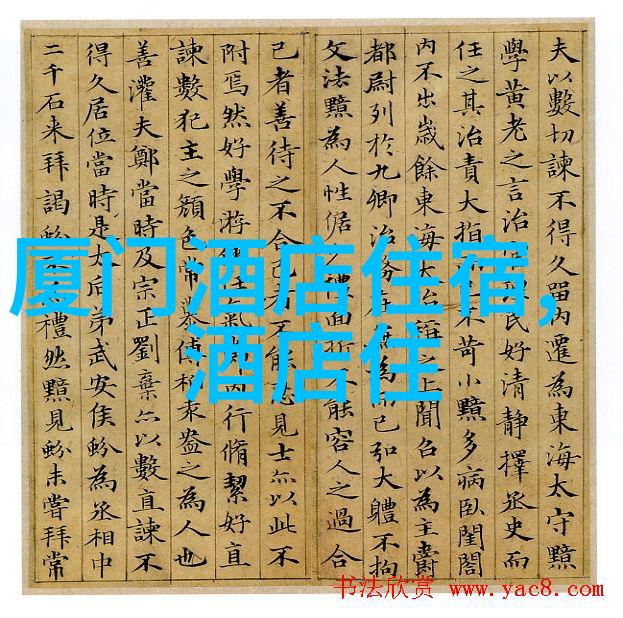 夫以數切諫不得久留內遷為東海太守黯
學黃老之言治民好清静擇丞史而
任之其治責大指不苛小黯多病臥閨閤
內不出歲餘東海大治稱之上聞召以為主爵
都尉列於九卿治務在無為而已弘大體不拘
文法黯為人性倨少禮面折不能容人之過合
己者善待之不合己者不能忍見士亦以此不
附焉然好學游俠任氣節內行脩絜好直
諫數犯主之顏色常慕傅柏袁盎之為人也
善灌夫鄭當時及宗正劉棄亦以數直諫不
得久居位當時是太后弟武安侯蚡為丞相中
二千石来拜謁蚡禮然黯見蚡未嘗拜常
厦门酒店住宿,
酒店住
书法欣赏 www.yac8.com